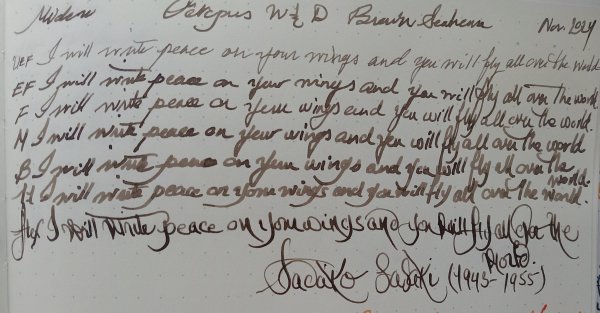 Modern Octopus W&D Brown Seahorse Nov. 2024
UEF I will write peace on your wings and you will fly all over the world
EF I will write peace on your wings and you will fly all over the world.
F I will write peace on your wings and you will fly all over the world.
M I will write peace on your wings and you will fly all over the world
B I will write peace on your wings and you will fly all over the world.
H I will write peace on your wings and you will fly all over the world.
flex I will write peace on your wings and you will fly all over the
World.
Sadako Sasaki (1943-1955)